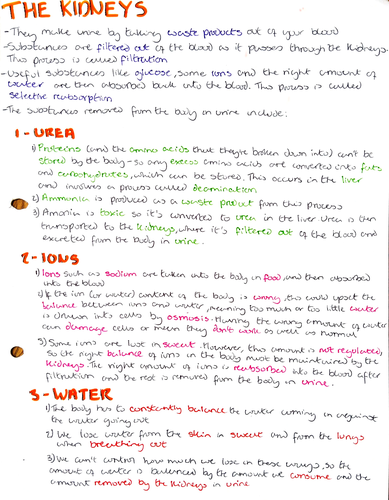 THE KIDNEYS
- They make urine by taking waste products out of your blood
- Substances are filtered out of the blood as it passes through the kidneys.
This process is called filtration
- Useful substances like glucose, some ions and the right amount of
water are then absorbed back into the blood. This process is called
selective reabsorption
- The substances removed from the body in urine include:
1 - UREA
1) Proteins (and the amino acids that they're broken down into) can't be
stored by the body - so any excess amino acids are converted into fats
and carbohydrates, which can be stored. This occurs in the liver
and involves a process called deamination
2) Ammonia is produced as a waste product from this process
3) Amonia is toxic so it's converted to urea in the liver. Urea is then
transported to the kidneys, where it's filtered out of the blood and
excreted from the body in urine.
2 - IONS
1) Ions such as sodium are taken into the body in food, and then absorbed
into the blood
2) If the ion (or water) content of the body is wrong, this could upset the
balance between ions and water, meaning too much or too little water
is drawn into cells by osmosis. Having the wrong amount of water
can damage cells or mean they don't work as well as normal
3) Some ions are lost in sweat. However, this amount is not regulated,
so the right balance of ions in the body must be maintained by the
kidneys. The right amount of ions is reabsorbed into the blood after
filtration and the rest is removed from the body in urine.
3 - WATER
1) The body has to constantly balance the water coming in against
the water going out
2) We lose water from the skin in sweat and from the lungs
when breathing out
3) We can't control how much we lose in these ways, so the
amount of water is balanced by the amount we consume and the
amount removed by the kidneys in urine